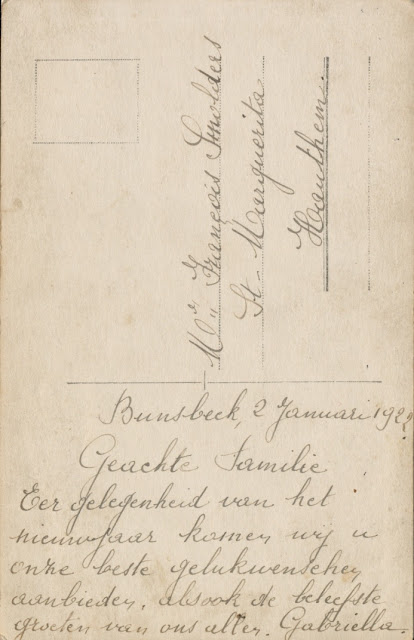 Mr François Smolders
St-Marguerita
Houthem.
Bunsbeek, 2 Januari
Geachte Familie
Eer gelegenheid van het
nieuwjaar komen wij u
onze beste gelukwenschen
aanbieden, alsook de beleefste
groeten van ons allen. Gabriella